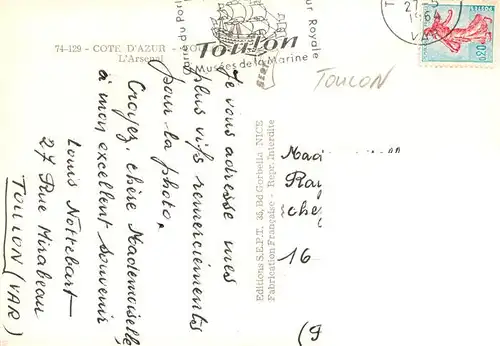 74-129 - COTE D'AZUR -
L'Arsenal
Toulon
Musées de la Marine
Royale
TOULON
Je vous adresse mes
plus vifs remerciements
pour la photo.
Croyez, chère Mademoiselle
à mon excellent souvenir
Louis Nottebart
27 Rue Mirabeau
TOULON (VAR)
Editions S.E.P.T. 35, Bd Gorbella NICE
Fabrication Française - Repr. Interdite
Ray
che
16
VAR
0,20